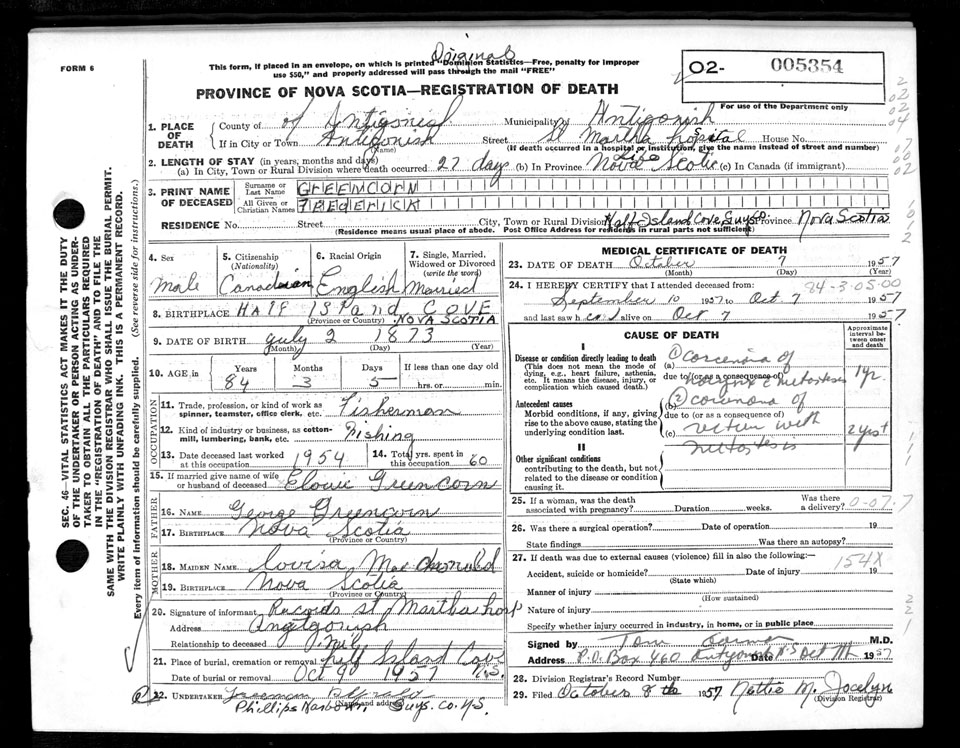 Original
FORM 6
This form, if placed in an envelope, on which is printed "Dominion Statistics—Free, penalty for improper
use $50," and properly addressed will pass through the mail "FREE"
O2- 005354
For use of the Department only
PROVINCE OF NOVA SCOTIA—REGISTRATION OF DEATH
1. PLACE OF DEATH
County of of Antigonish Municipality of Antigonish
If in City or Town Antigonish (Name) Street St Martha hospital House No.
(If death occurred in a hospital or institution, give the name instead of street and number)
2. LENGTH OF STAY (in years, months and days)
(a) In City, Town or Rural Division where death occurred 27 days (b) In Province Life Nova Scotia (c) In Canada (if immigrant)
3. PRINT NAME OF DECEASED
Surname or Last Name GREENCORN
All Given or Christian Names FREDERICK
RESIDENCE No. Street City, Town or Rural Division Half Island Cove, Guys. Province Nova Scotia
(Residence means usual place of abode. Post Office Address for residents in rural parts not sufficient)
4. Sex Male
5. Citizenship (Nationality) Canadian
6. Racial Origin English
7. Single, Married, Widowed or Divorced (write the word) Married
8. BIRTHPLACE Half Island COVE NOVA SCOTIA
(Province or Country)
9. DATE OF BIRTH July 2 1873
(Month) (Day) (Year)
10. AGE in Years 84 Months 3 Days 5 If less than one day old hrs. or min.
OCCUPATION
11. Trade, profession, or kind of work as spinner, teamster, office clerk, etc. Fisherman
12. Kind of industry or business, as cotton-mill, lumbering, bank, etc. Fishing
13. Date deceased last worked at this occupation 1954
14. Total yrs. spent in this occupation 60
15. If married give name of wife or husband of deceased Greencorn
FATHER
16. Name George Greencorn
17. Birthplace Nova Scotia
(Province or Country)
MOTHER
18. Maiden Name Louisa
19. Birthplace Nova Scotia
(Province or Country)
20. Signature of informant Records St Martha hosp
Address Antigonish
Relationship to deceased Nil
21. Place of burial, cremation or removal Half Island Cove N.S.
Date of burial or removal Oct 9th 1957
22. UNDERTAKER Freeman
(Name and address)
Phillips Harbour, Guys. Co. N.S.
MEDICAL CERTIFICATE OF DEATH
23. DATE OF DEATH October 7 1957
(Month) (Day) (Year)
84-3-05-00
24. I HEREBY CERTIFY that I attended deceased from:
September 10 1957 to Oct 7 1957
and last saw h alive on Oct 7 1957
CAUSE OF DEATH
Approximate interval between onset and death
I
Disease or condition directly leading to death
(This does not mean the mode of dying, e.g., heart failure, asthenia, etc. It means the disease, injury, or complication which caused death.)
(a) ① carcinoma of
due to (or as a consequence of) metastasis 1 yr.
Antecedent causes
Morbid conditions, if any, giving rise to the above cause, stating the underlying condition last.
(b) (2) carcinoma of
due to (or as a consequence of)
(c) rectum with 2 yrs
metastasis
II
Other significant conditions
contributing to the death, but not related to the disease or condition causing it.
25. If a woman, was the death associated with pregnancy? Duration weeks. Was there a delivery? 0-07.7
26. Was there a surgical operation? Date of operation 19
State findings Was there an autopsy?
27. If death was due to external causes (violence) fill in also the following:—
154X
Accident, suicide or homicide? Date of injury 19
(State which)
Manner of injury
(How sustained)
Nature of injury
Specify whether injury occurred in industry, in home, or in public place
Signed by Tom M.D.
Address P.O. Box 460 Antigonish N.S Date Oct 7th 1957
28. Division Registrar's Record Number
29. Filed October 8th 1957 Nettie M. Jocelyn
(Division Registrar)
SEC. 46—VITAL STATISTICS ACT MAKES IT THE DUTY
OF THE UNDERTAKER OR PERSON ACTING AS UNDER-
TAKER TO OBTAIN ALL THE PARTICULARS REQUIRED
IN THE "REGISTRATION OF DEATH" AND TO FILE THE
SAME WITH THE DIVISION REGISTRAR WHO SHALL ISSUE THE BURIAL PERMIT.
WRITE PLAINLY WITH UNFADING INK. THIS IS A PERMANENT RECORD.
Every item of information should be carefully supplied. (See reverse side for instructions.)